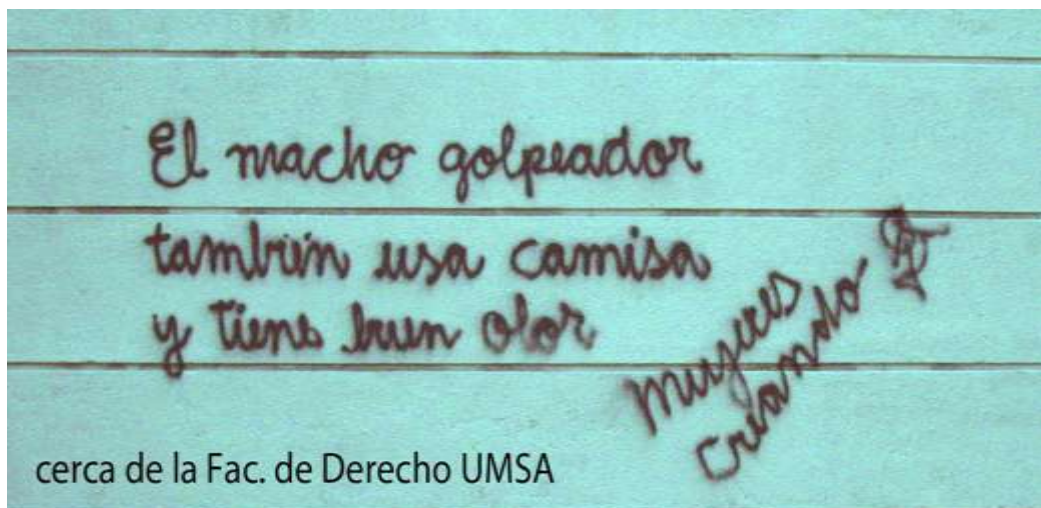 El macho golpeador
también usa camisa
y tiene buen olor
Mujeres
Creando
cerca de la Fac. de Derecho UMSA